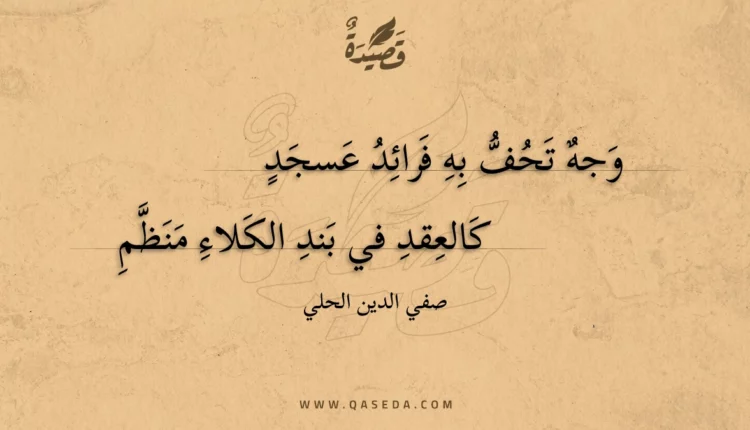 قَصِيْدَةٌ
وَجهٌ تَحُفُّ بِهِ فَرائِدُ عَسجَدٍ
كَالعِقدِ في بَندِ الكَلاءِ مَنَظَّمِ
صفي الدين الحلي
WWW.QASEDA.COM